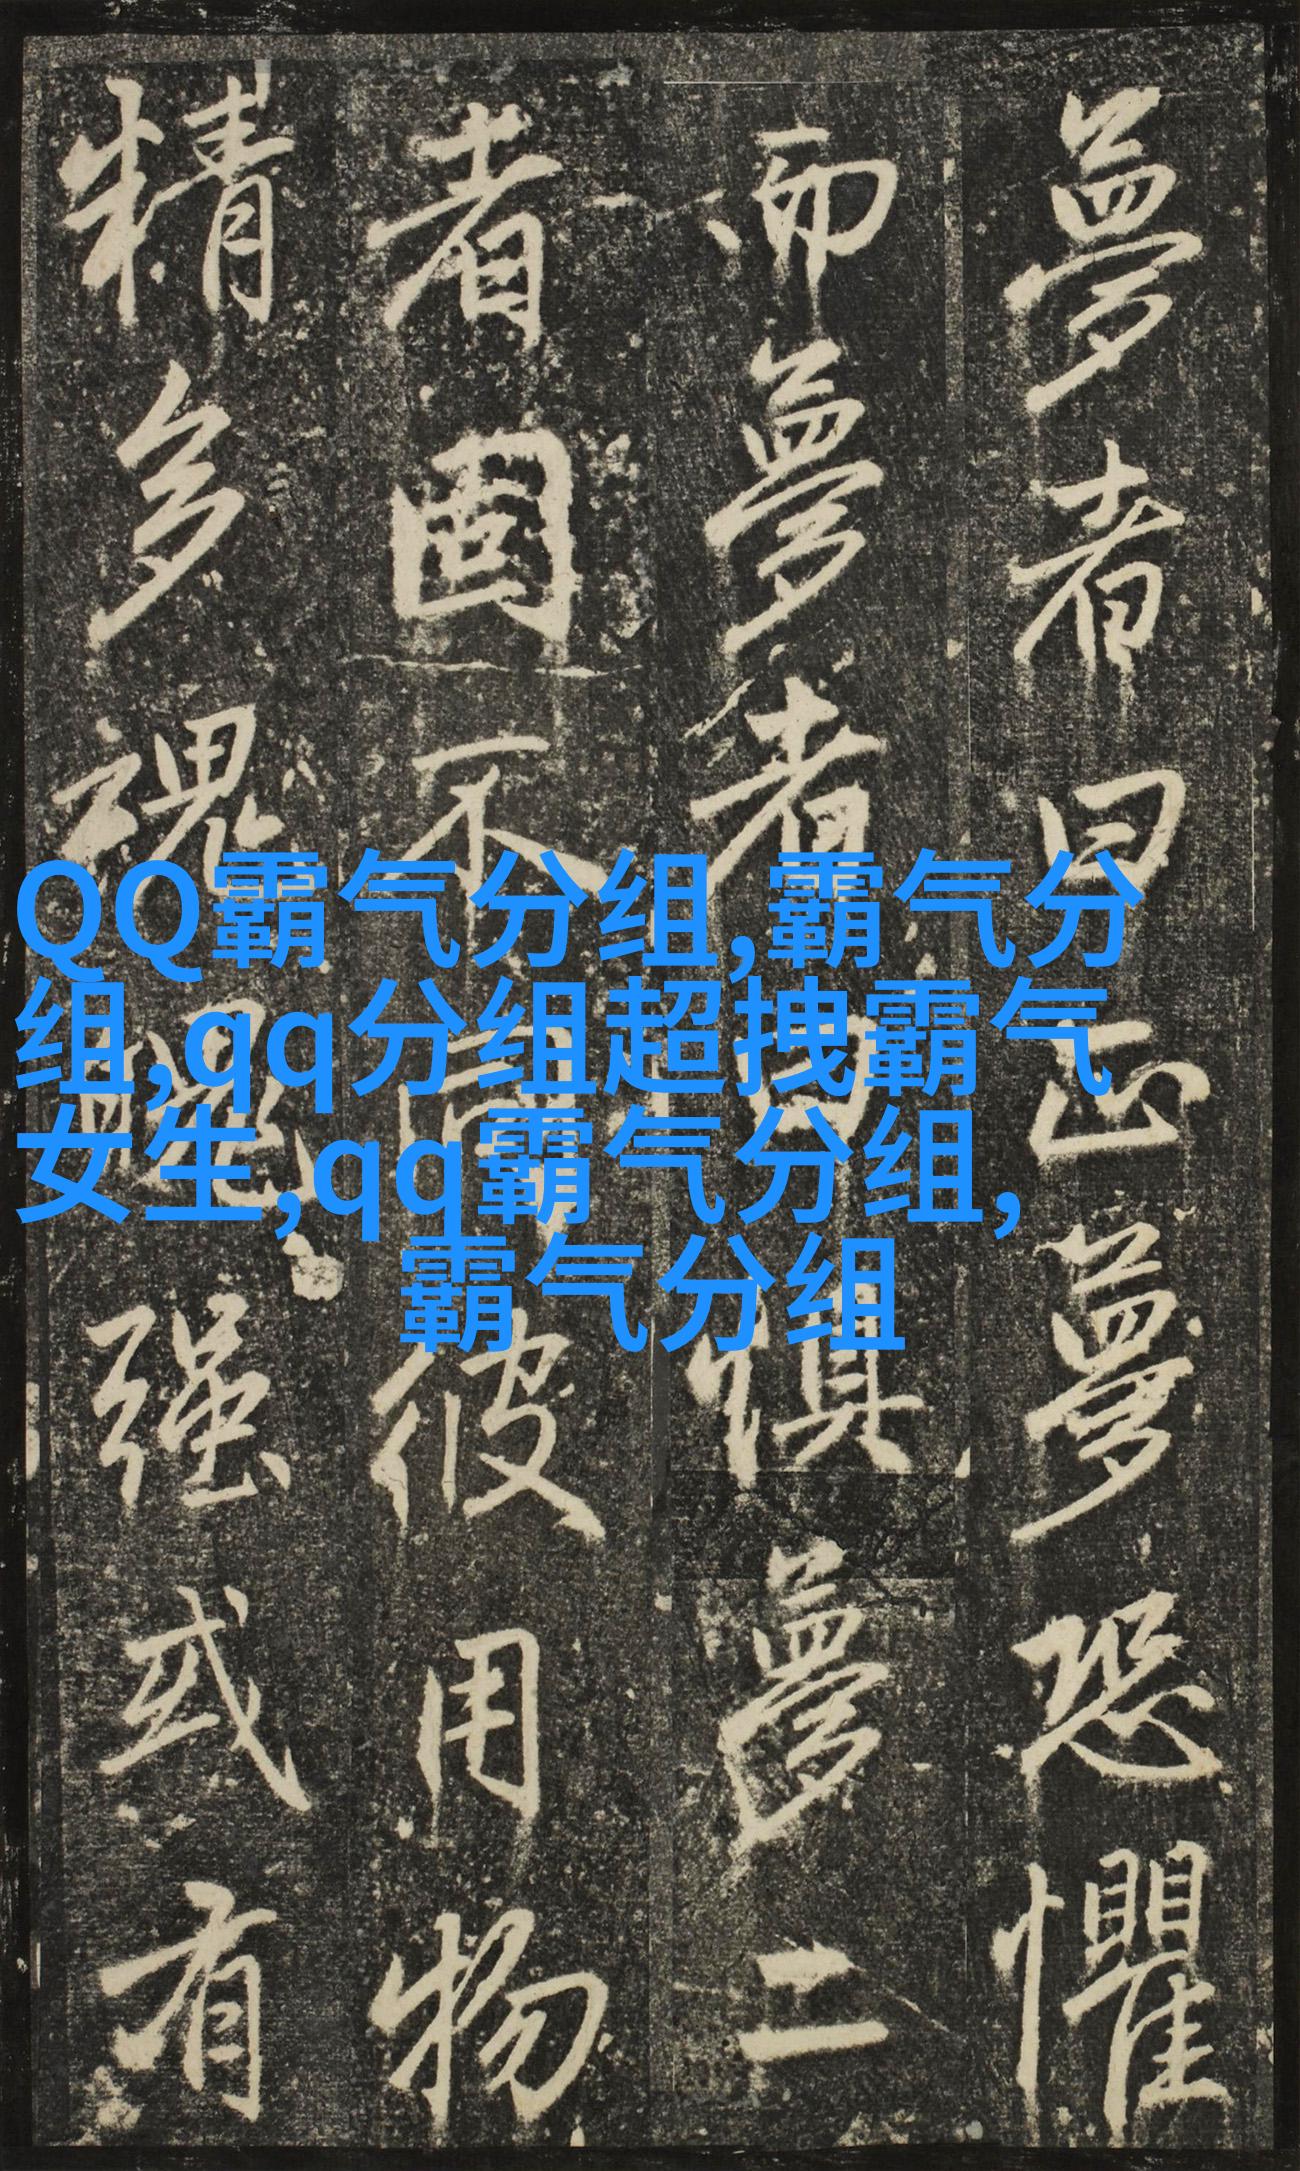 夢者曰正夢恐懼
而夢者曰惧夢二
者固不同彼用物
精多魂魄强或有
QQ霸气分组,霸气分
组,qq分组超拽霸气
女生,qq霸气分组,
霸气分组